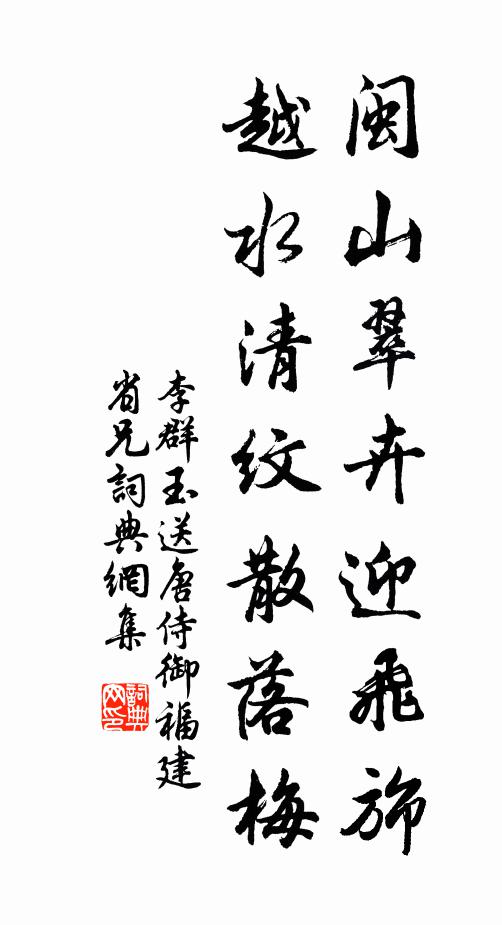 閩山翠卉迎飛斾
越水清紋散落梅
李群玉送唐侍御福建
省兄詞典網集
詞典
网印